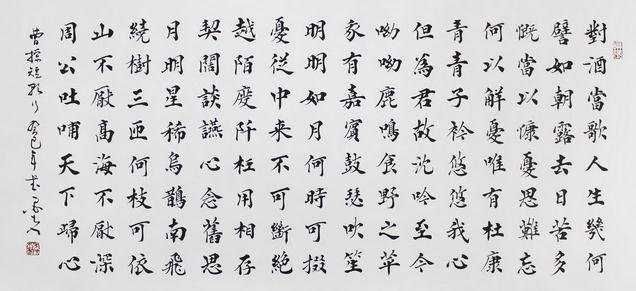 對酒當歌人生幾何
譬如朝露去日苦多
慨當以慷憂思難忘
何以解憂唯有杜康
青青子衿悠悠我心
但為君故沈吟至今
呦呦鹿鳴食野之苹
我有嘉賓鼓瑟吹笙
明明如月何時可掇
憂從中來不可斷絕
越陌度阡枉用相存
契闊談讌心念舊恩
月明星稀烏鵲南飛
繞樹三匝何枝可依
山不厭高海不厭深
周公吐哺天下歸心
曹操短歌行癸巳年